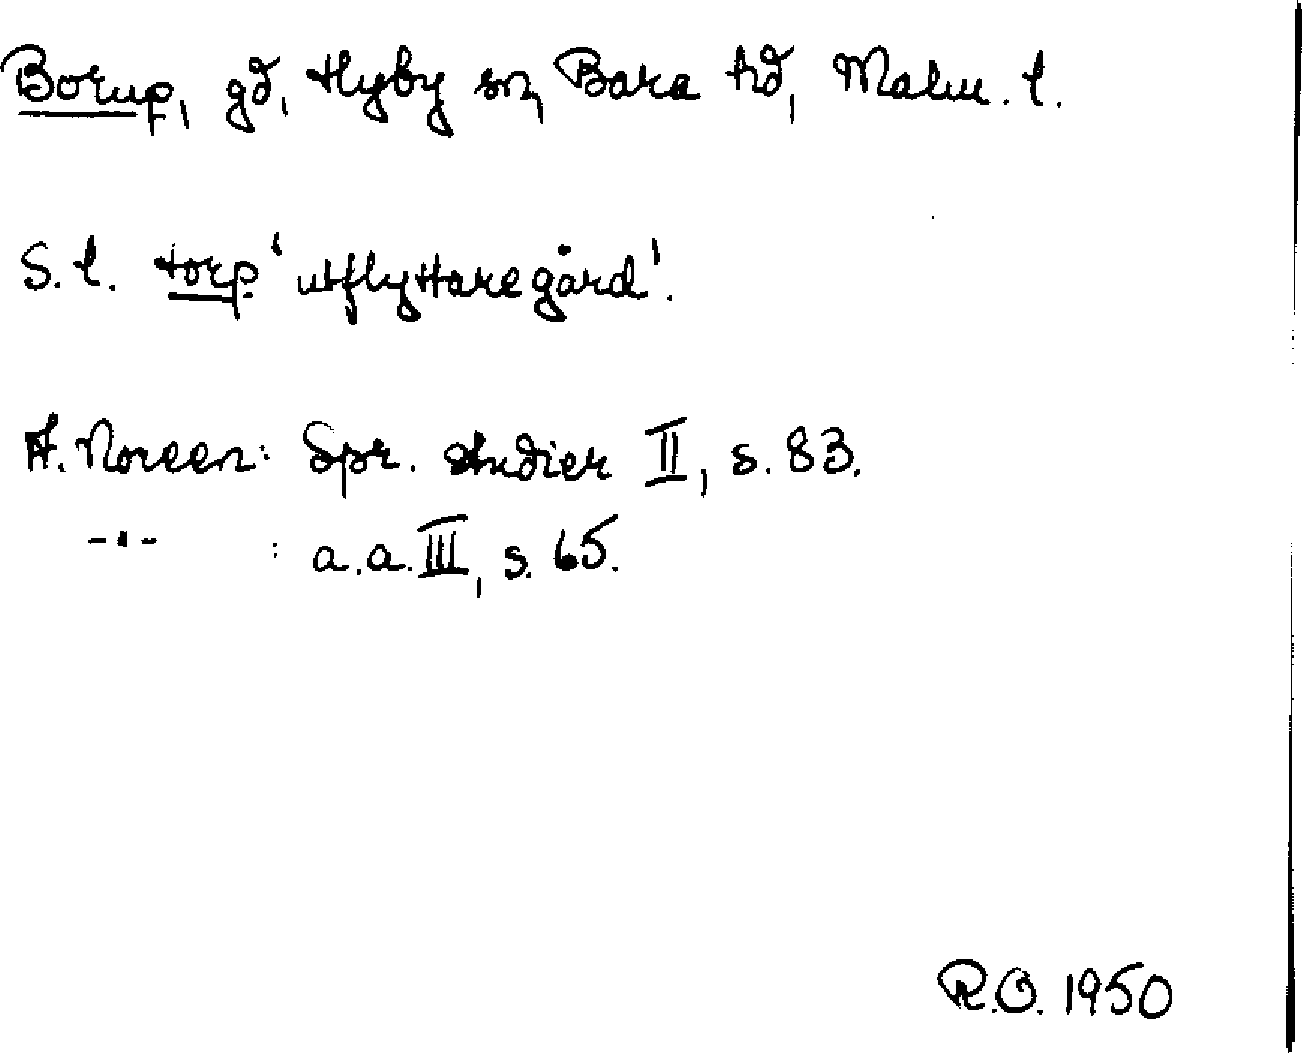 Borup, gd, Hyby sn, Bara hd, Malm. l.
S. l. torp 'utflyttaregård'.
A. Noreen: Spr. studier II, s. 83.
-"- : a.a. III, s. 65.
R.O. 1950